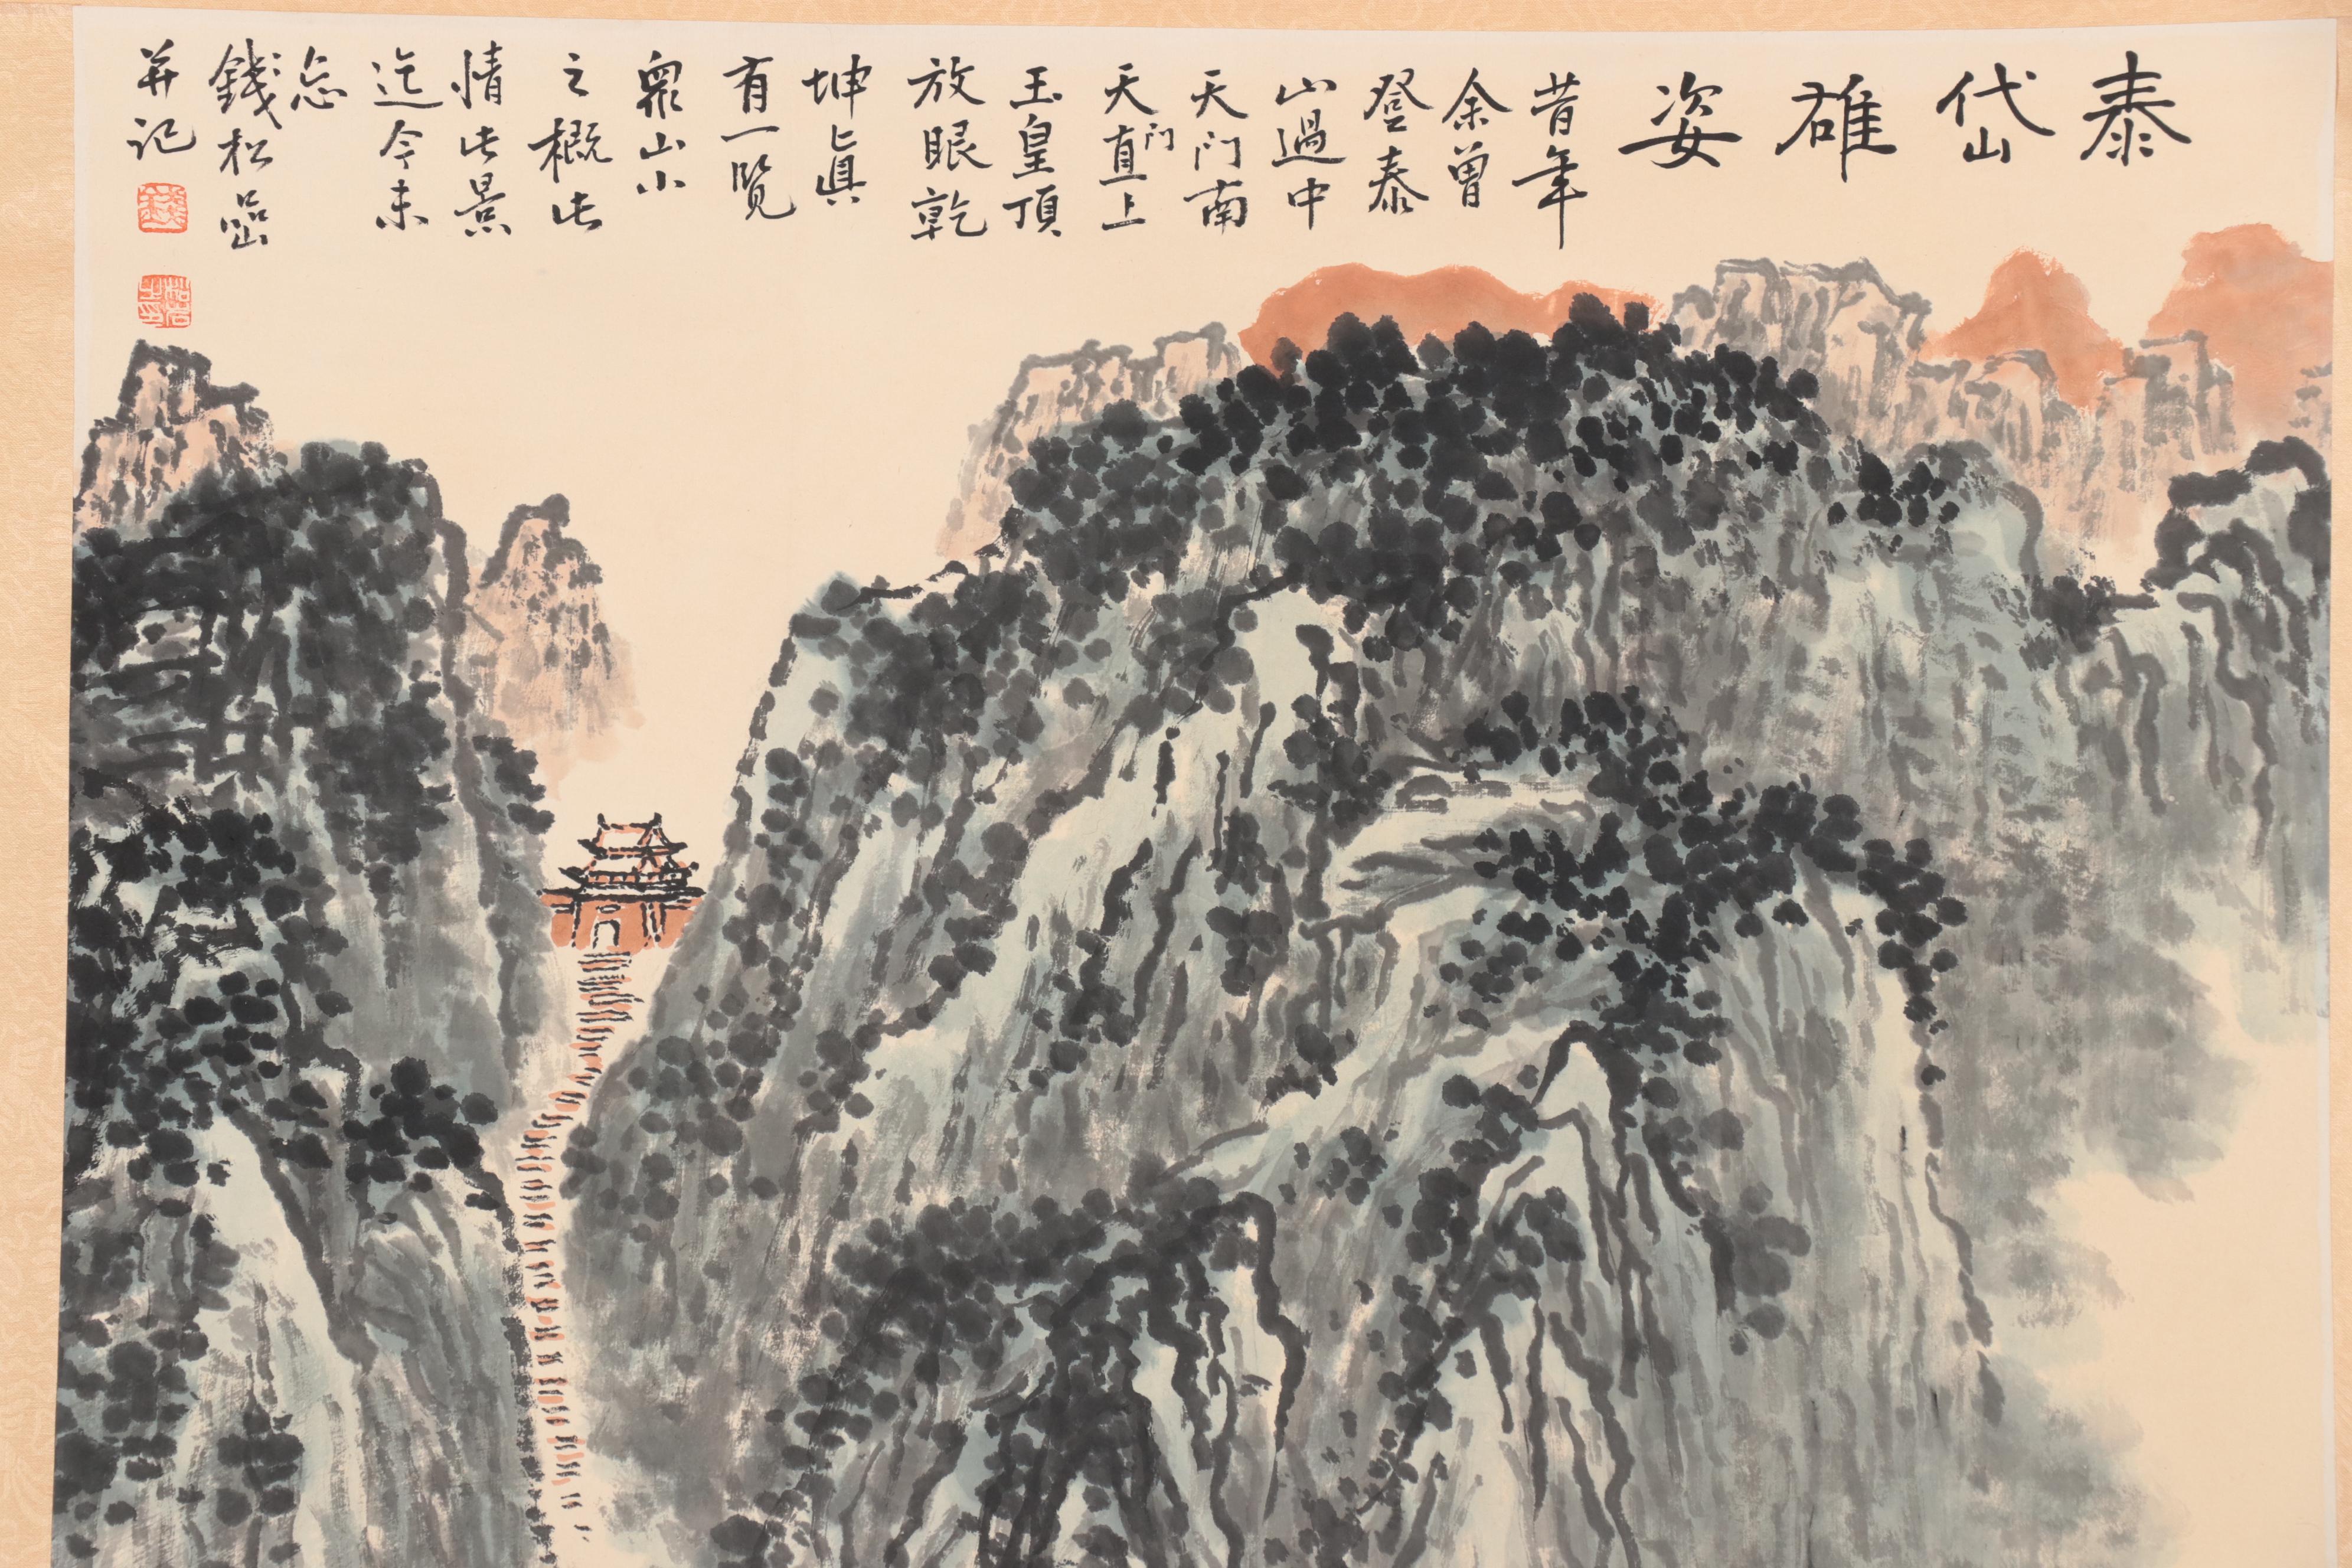 泰岱雄姿
昔年
余曾
登泰
山過中
天门南
天门直上
玉皇頂
放眼乾
坤真
有一覽
眾山小
之概此
情此景
迄今未
忘
錢松嵒
并记